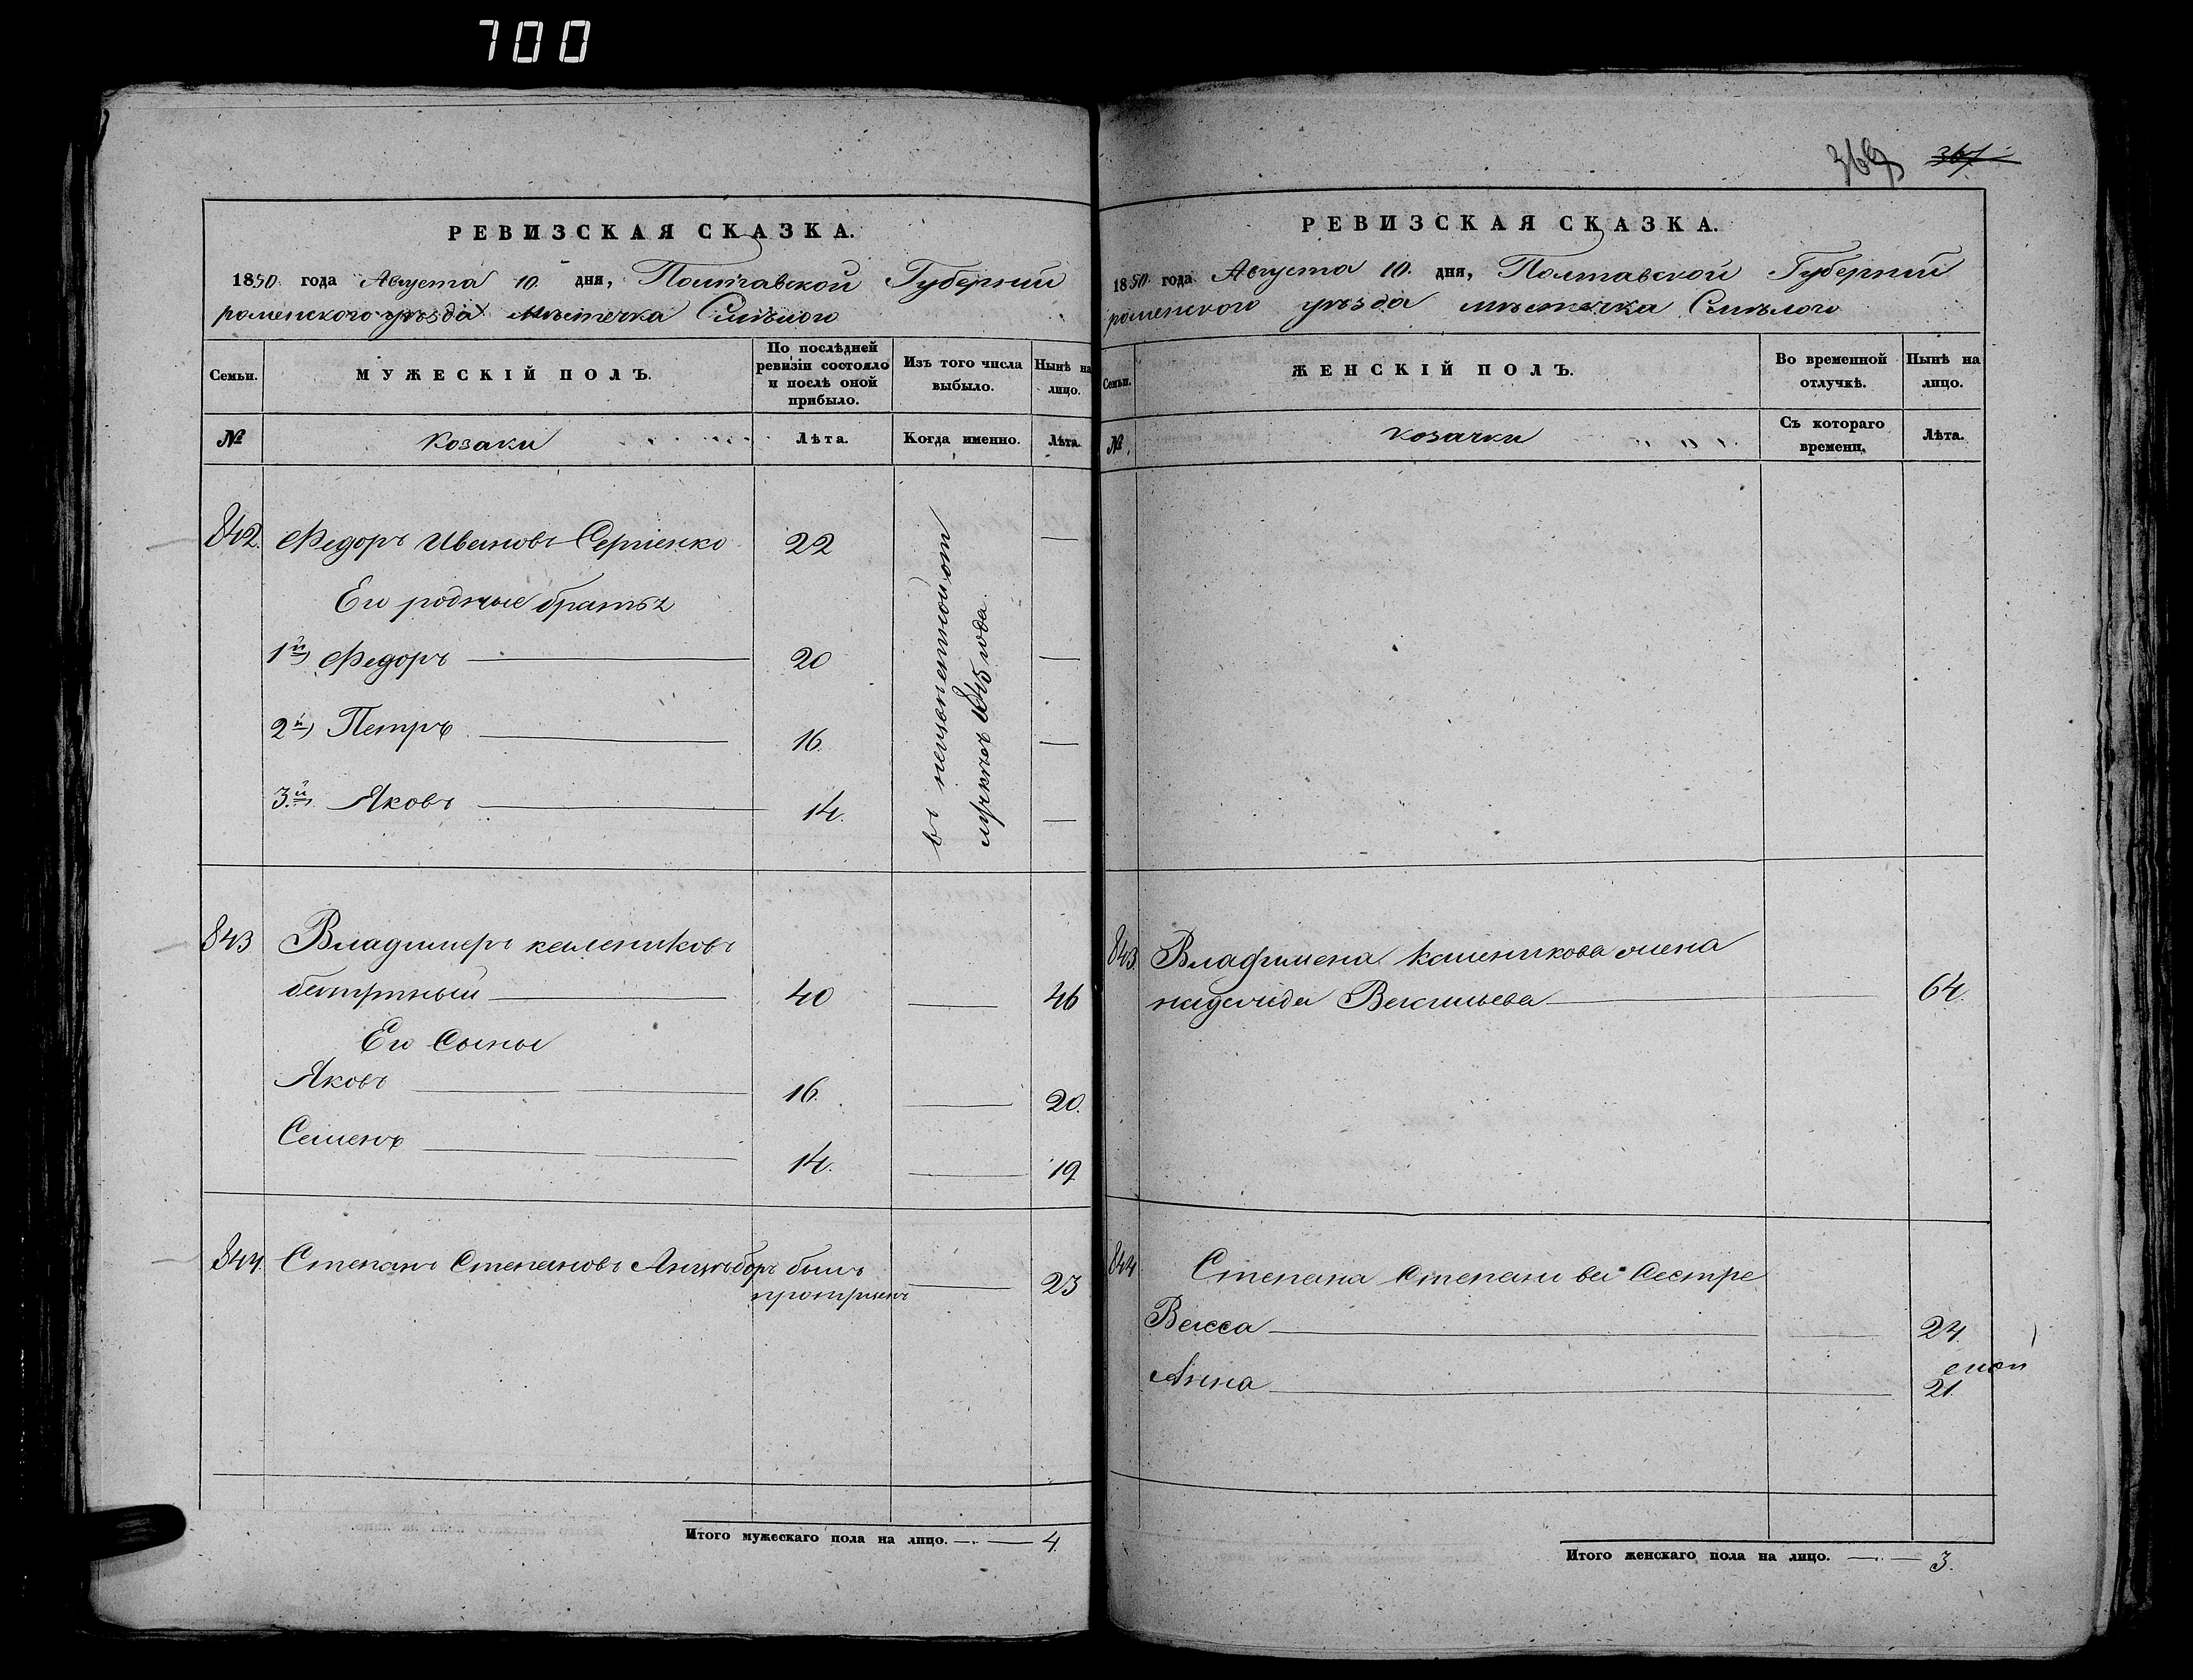 700
РЕВИЗСКАЯ СКАЗКА.
1850. года Августа 10. дня, Полтавской Губернии
роменского уѣзда мѣстечка Смѣлого
Семьи.
МУЖЕСКІЙ ПОЛЪ.
По послѣдней ревизіи состояло и послѣ оной прибыло.
Изъ того числа выбыло.
Нынѣ на лицо.
№
Козаки
Лѣта.
Когда именно.
Лѣта.
842. Федоръ Ивановъ Сергіенко 22 —
Его родные братья
1й) Федоръ — 20 —
2й) Петръ — 16. —
3й) Яковъ — 14. —
въ отлучкѣ 1845 года.
843 Владимеръ
— 40 — 46
Его Сыны
Яковъ — 16. — 20.
Семенъ — 14. — 19
844. Степанъ Степановъ былъ
— 23
Итого мужескаго пола на лицо. — 4.
369 367
РЕВИЗСКАЯ СКАЗКА.
1850. года Августа 10. дня, Полтавской Губернии
роменского уѣзда мѣстечка Смѣлого
Семьи.
ЖЕНСКІЙ ПОЛЪ.
Во временной отлучкѣ.
Нынѣ на лицо.
№
козачки
Съ котораго времени.
Лѣта.
843 жена
Васильева — 64.
844 Степана Степанова Сестре
Васса — 24
Анна — 21.
Итого женскаго пола на лицо. — 3.